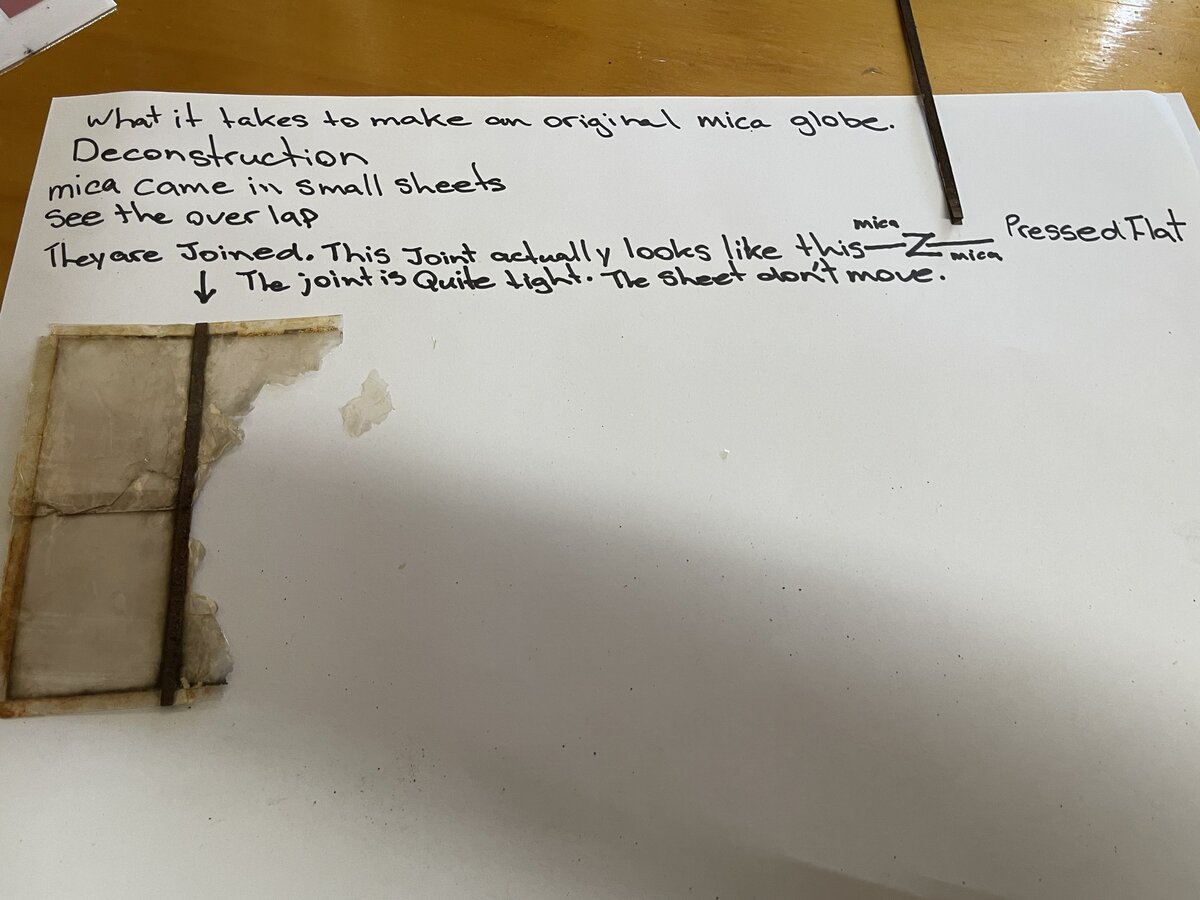 What it takes to make an original mica globe.
Deconstruction
mica came in small sheets
see the over lap
They are Joined. This Joint actually looks like this mica Z mica Pressed Flat
↓ The joint is Quite tight. The sheet don't move.